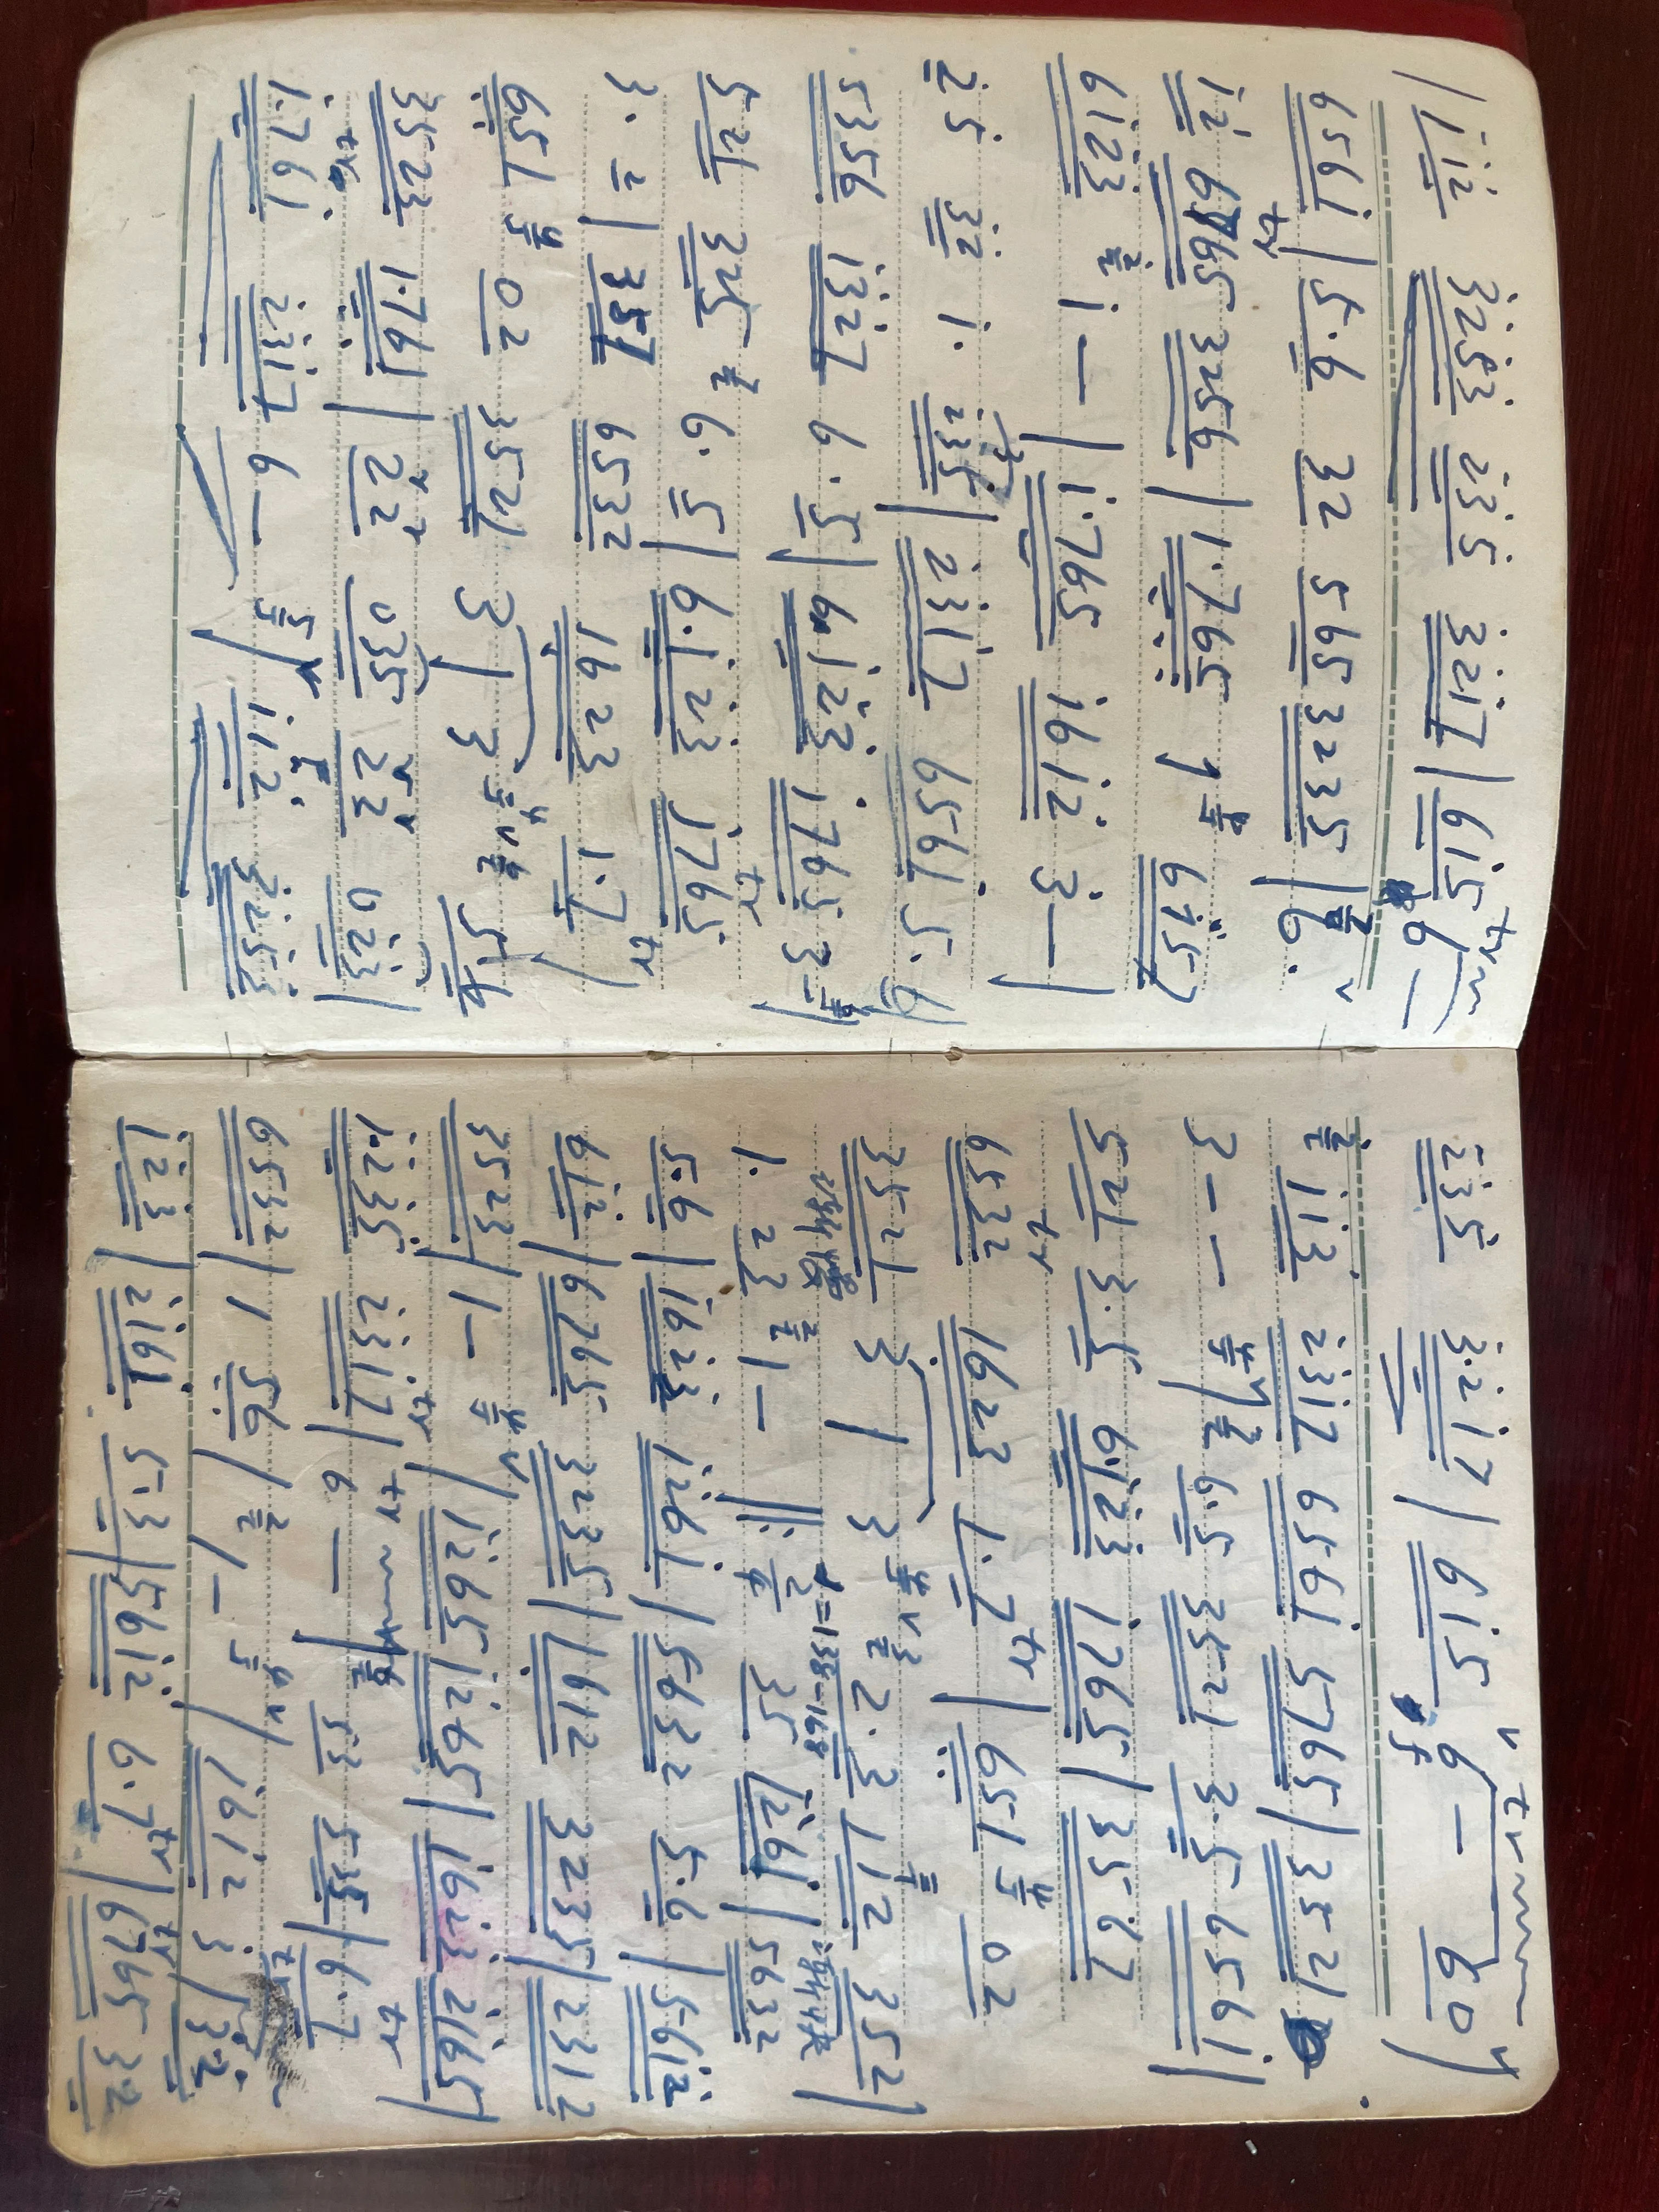 1 12 3253 235 3217 | 615 tr 6 —
6561 | 5·6 32 565 3235 | 6·
12 6765 tr 3256 | 1·765 1 6157
6123 1 — | 1·765 1612 3 — |
25 32 1· 235 | 2317 6561 5·6
5356 1327 6·5 | 6·123 1765 3 — |
521 325 6·5 | 6·123 1765 tr
3· | 357 6532 1623 1·7 tr |
651 02 3521 3 | 3
3523 1·761 | 22 035 22 023 |
1·761 tr 2317 6 — | 112 3252
235 3·217 | 615 6 — 60 | tr
113 2312 6561 5765 | 3521
3 — — | 6·5 3521 3·5 6561 |
521 3·5 6·123 1765 | 3567
6532 tr 1623 1·7 tr | 651 02
3521 3 | 3 2·3 112 352 |
渐慢 =138-168
1· 23 1 — 35 1261 | 5632
5·6 | 1623 1261 | 5632 5·6 | 5612
612 | 6765 3235 | 1612 3235 | 2312
3523 | 1 — | 1265 1265 | 1623 2165 |
1·235 2317 tr | 6 — tr | 53 535 | 6·7 tr
6532 | 1 56 | 1 — | 1612 3 | 32
123 | 2161 5·3 | 5612 6·7 tr | 6765 tr 32